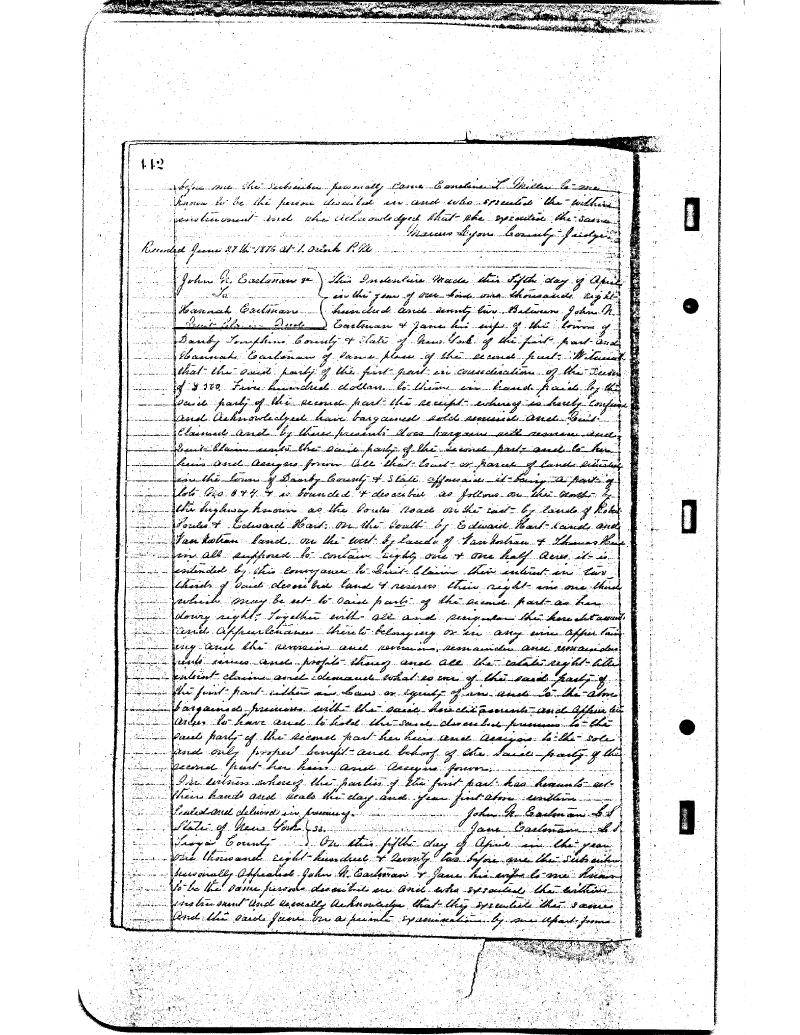 442
before me the subscriber personally came Emeline L. Miller to me
known to be the person described in and who executed the within
instrument and she acknowledged that she executed the same
Marcus Lyon County Judge
Recorded June 27th 1876 at 1. oclock P.M
John N. Eastman &
To
Hannah Eastman
Quit Claim Deed
This Indenture Made this Fifth day of April
in the year of our Lord one thousand eight
hundred and seventy two. Between John N.
Eastman & Jane his wife of the town of
Danby Tompkins County & State of New York of the first part and
Hannah Eastman of same place of the second part. Witnesseth
that the said party of the first part in consideration of the Sum
of $500 Five hundred dollars to them in hand paid by the
said party of the second part the receipt whereof is hereby confessed
and acknowledged have bargained sold remised and Quit
Claimed and by these presents does bargain sell remise and
Quit Claim unto the said party of the second part and to her
heirs and assigns forever All that tract or parcel of land situated
in the town of Danby County & State aforesaid it being a part of
lots No. 3 & 4 & is bounded & described as follows on the North by
the highway known as the road on the East by lands of
& Edward Hart. on the South by Edward Hart land and
land. on the west by lands of & Thomas
in all supposed to contain eighty one & one half Acres it is
intended by this conveyance to Quit Claim their interest in two
thirds of said described land & reserve their right in one third
which may be set to said party of the second part as her
dowry right. Together with all and singular the hereditaments
and appurtenances thereto belonging or in any wise appertain
ing and the reversion and reversions, remainder and remainders
rents issues and profits thereof and all the estate right title
interest claim and demand whatsoever of the said party of
the first part either in Law or equity of in and to the above
bargained premises with the said hereditaments and appurten
ances to have and to hold the said described premises to the
said party of the second part her heirs and assigns to the sole
and only proper benefit and behoof of the said party of the
second part her heirs and assigns forever.
In witness whereof the parties of the first part has hereunto set
their hands and seals the day and year first above written
Sealed and delivered in presence of. John N. Eastman L.S
State of New York ss. Jane Eastman L.S.
Tioga County On this fifth day of April in the year
one thousand eight hundred & seventy two before me the subscriber
personally appeared John N. Eastman & Jane his wife to me known
to be the same persons described in and who executed the within
instrument and severally acknowledge that they executed the same
and the said Jane on a private examination by me apart from